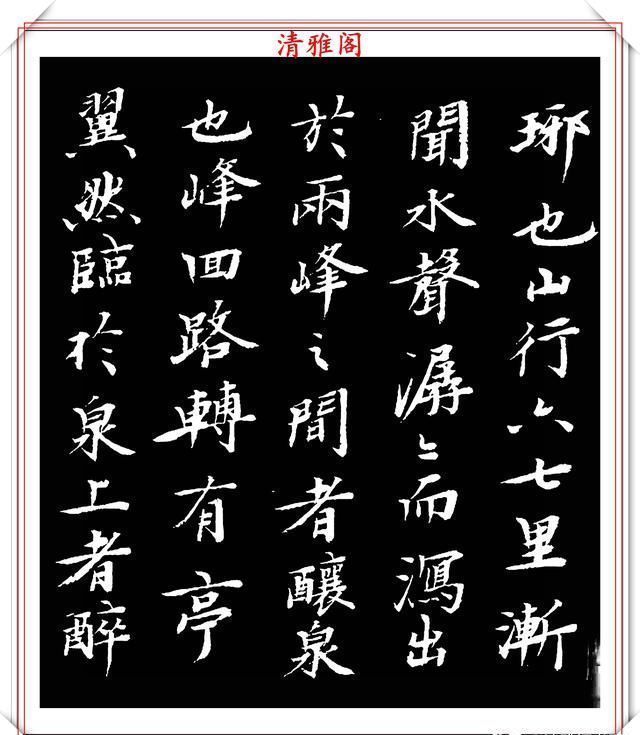 清雅阁
琊也山行六七里漸
聞水聲潺〻而瀉出
於兩峰之間者釀泉
也峰回路轉有亭
翼然臨於泉上者醉